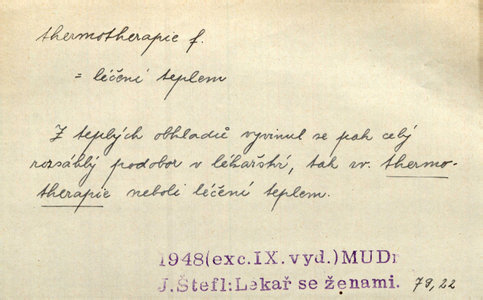 thermotherapie f.
= léčení teplem
Z teplých obkladů vyvinul se pak celý
rozsáhlý podobor v lékařství, tak zv. thermo-
therapie neboli léčení teplem.
1948(exc.IX.vyd.)MUDr
J.Štefl:Lékař se ženami. 79,22